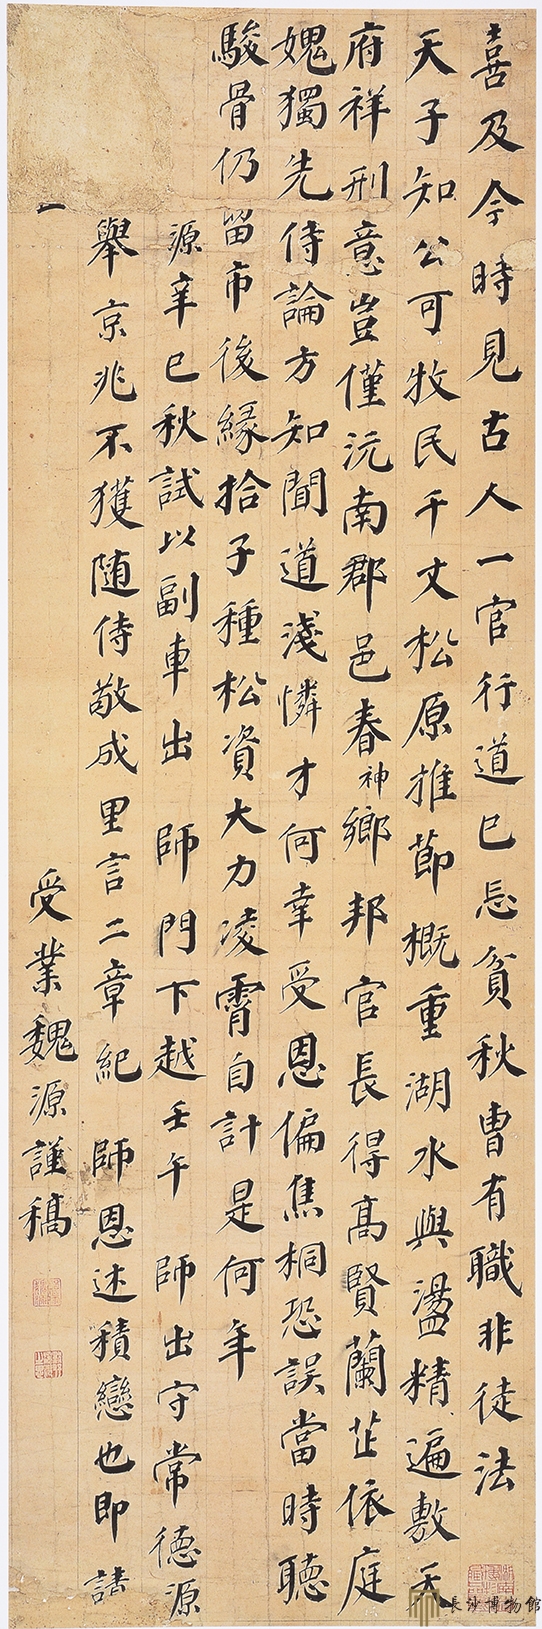 喜及今時見古人一官行道已忘貧秋曹有職非徒法
天子知公可牧民千丈松原推節概重湖水與盪精神遍敷天
府祥刑意豈僅沅南郡邑春鄉邦官長得高賢蘭芷依庭
媿獨先侍論方知聞道淺憐才何幸受恩偏焦桐恐誤當時聽
駿骨仍留市後緣拾子種松資大力凌霄自計是何年
源辛巳秋試以副車出師門下越壬午師出守常德源
一舉京兆不獲隨侍敬成里言二章紀師恩述積戀也即請
受業魏源謹稿
長沙博物館